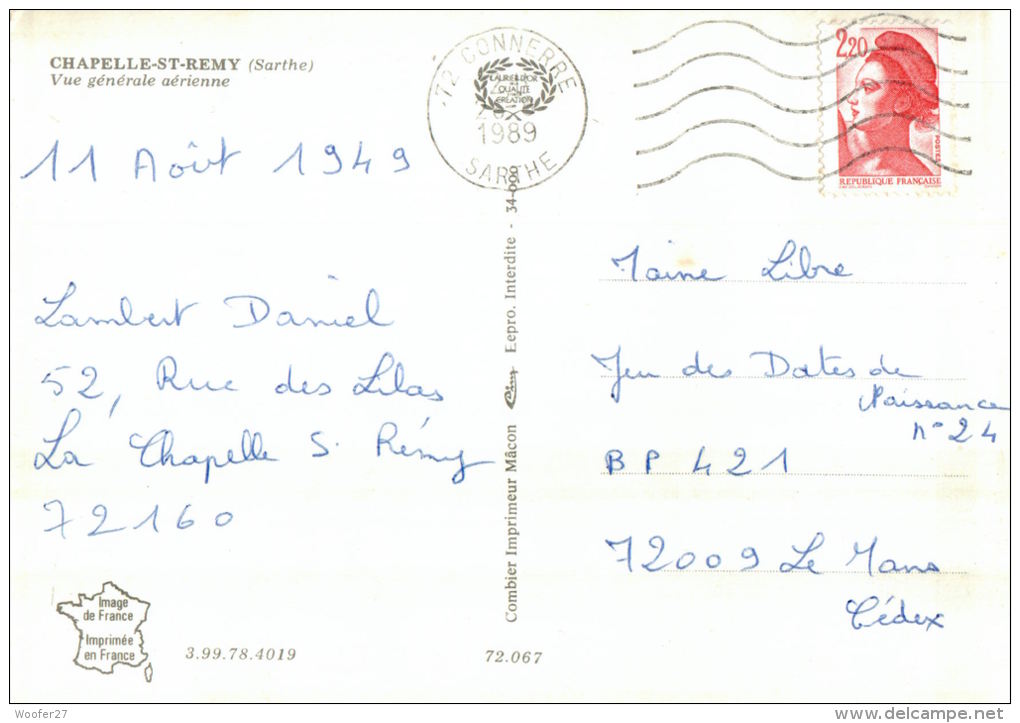 CHAPELLE-ST-REMY (Sarthe)
Vue générale aérienne
72 CONNERRE
LAURIER D'OR
QUALITÉ
CRÉATION
1989
SARTHE
2,20
POSTES
REPUBLIQUE FRANÇAISE
11 Août 1949
Lambert Daniel
52, Rue des Lilas
La Chapelle S. Rémy
72160
Combier Imprimeur Mâcon
Eepro. Interdite - 34-000
Maine Libre
Jeu des Dates de
Naissance
n° 24
BP 421
72009 Le Mans
Cédex
Image
de France
Imprimée
en France
3.99.78.4019
72.067
Woofer27
delcampe.net